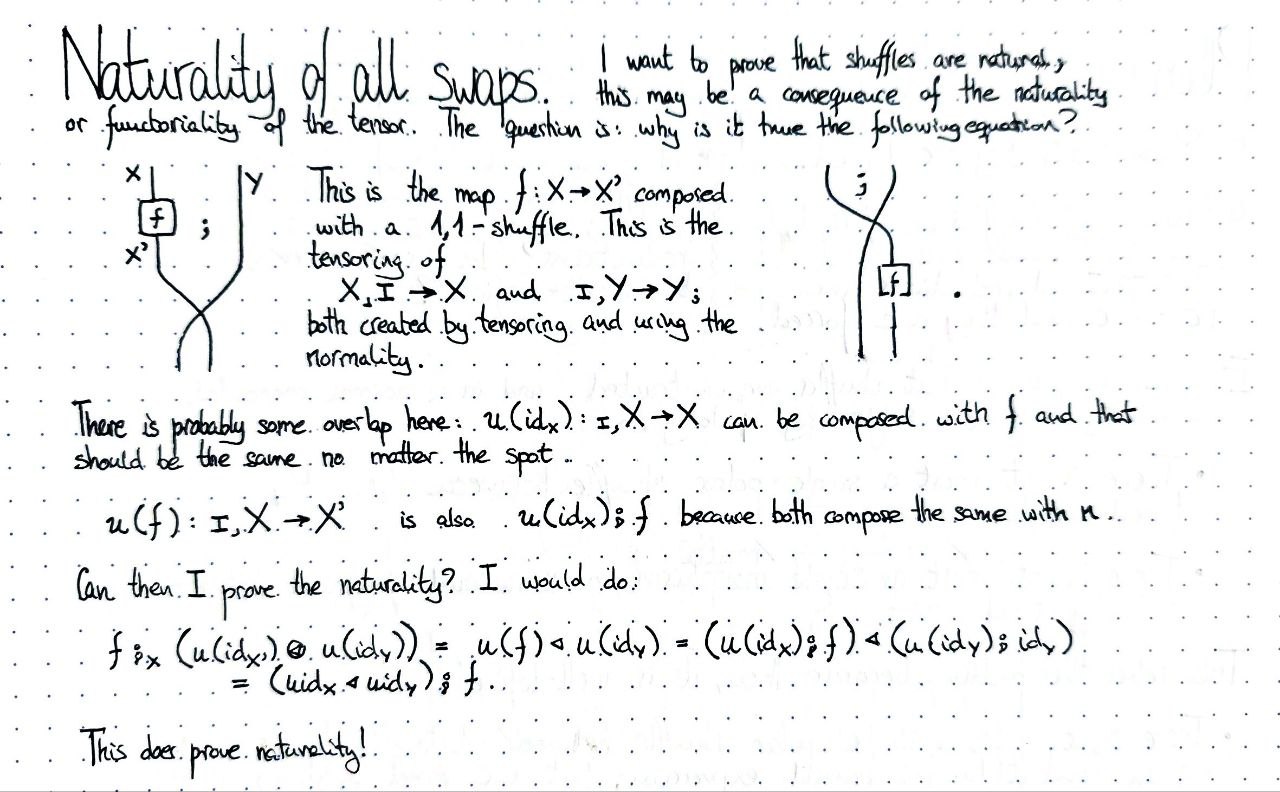 Naturality of all swaps.
I want to prove that shuffles are natural,
this may be a consequence of the naturality
or functoriality of the tensor. The question is: why is it true the following equation?
X
Y
f
;
X'
This is the map f: X → X' composed
with a 1,1-shuffle. This is the
tensoring of
X, I → X and I, Y → Y;
both created by tensoring and using the
normality.
;
f
.
There is probably some overlap here: u(id_X): I, X → X can be composed with f and that
should be the same no matter the spot..
u(f): I, X → X' is also u(id_X); f because both compose the same with n..
Can then I prove the naturality? I would do:
f ;_X (u(id_X') ⊗ u(id_Y)) = u(f) ◁ u(id_Y) = (u(id_X); f) ◁ (u(id_Y); id_Y)
= (uid_X ◁ uid_Y); f..
This does prove naturality!